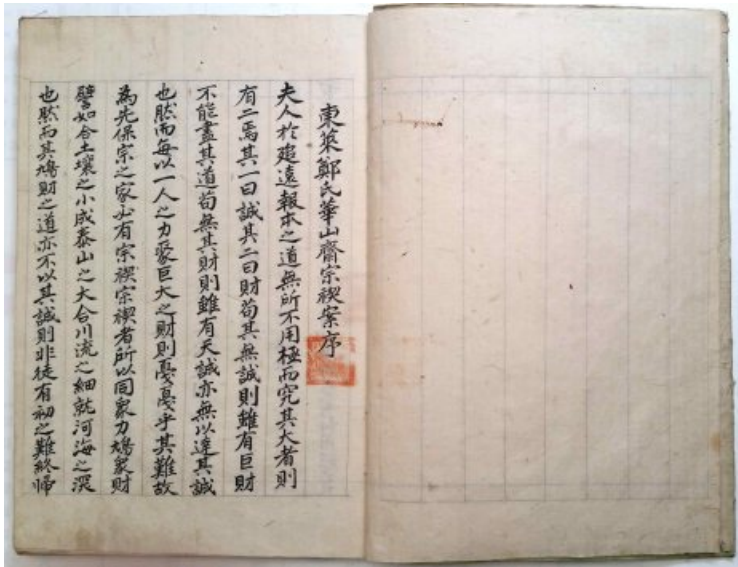 東萊鄭氏華山齋宗禊案序
夫人於追遠報本之道無所不用極而究其大者則
有二焉其一曰誠其二曰財苟其無誠則雖有巨財
不能盡其道苟無其財則雖有天誠亦無以達其誠
也然而每以一人之力聚巨大之財則戞戞乎其難故
為先保宗之家必有宗禊宗禊者所以同衆力鳩衆財
譬如合土壤之小成泰山之大合川流之細就河海之深
也然而其鳩財之道亦不以其誠則非徒有初之難終歸